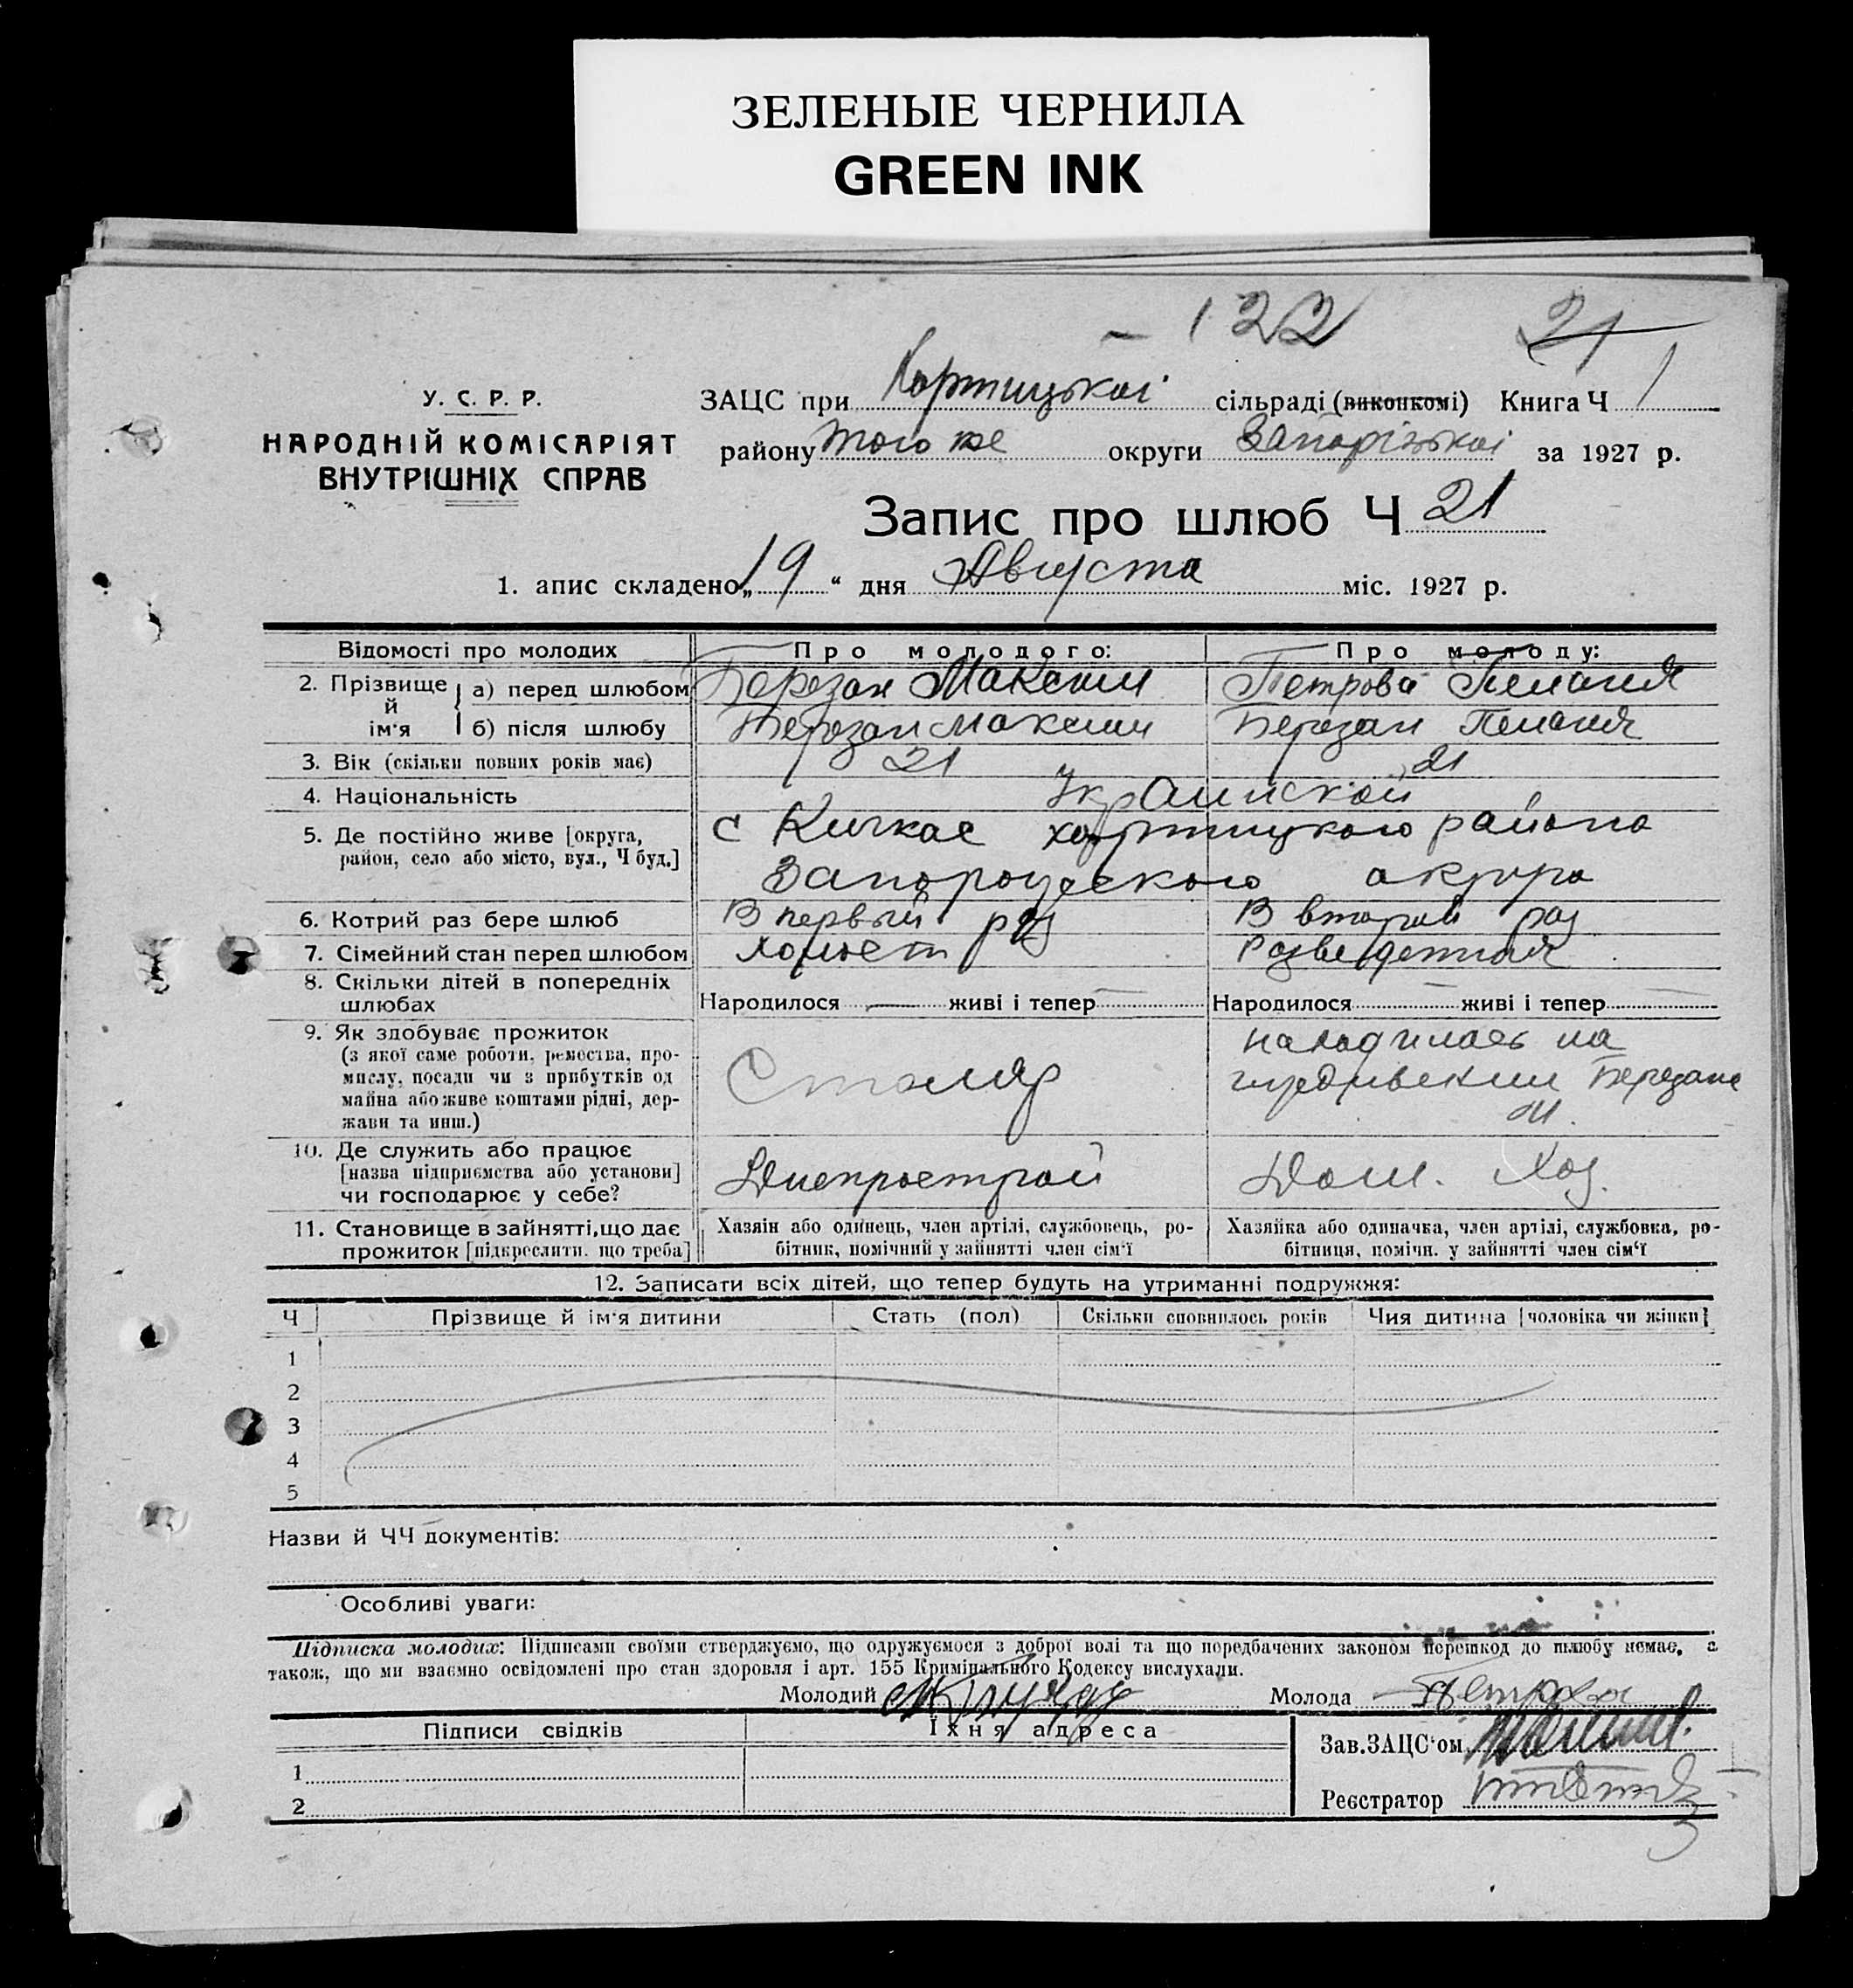 ЗЕЛЕНЫЕ ЧЕРНИЛА
GREEN INK
122 21
У. С. Р. Р.
НАРОДНІЙ КОМІСАРІЯТ
ВНУТРІШНІХ СПРАВ
ЗАЦС при Хортицькоі сільраді (виконкомі) Книга Ч 1
району того же округи Запоріжськоі за 1927 р.
Запис про шлюб Ч 21
1. апис складено „19“ дня Августа міс. 1927 р.
Відомості про молодих Про молодого: Про молоду:
2. Прізвище й ім'я а) перед шлюбом Березан Максим Петрова Пелагия
б) після шлюбу Березан Максим Березан Пелагия
3. Вік (скільки повних років має) 21 21
4. Національність Украинской
5. Де постійно живе [округа, район, село або місто, вул., Ч буд.] С Кичкас хортицкого района
Запорожского округа
6. Котрий раз бере шлюб В первый раз В второй раз
7. Сімейний стан перед шлюбом холост Разведенная
8. Скільки дітей в попередніх шлюбах Народилося — живі і тепер — Народилося — живі і тепер —
9. Як здобуває прожиток
(з якої саме роботи, ремества, про-
мислу, посади чи з прибутків од
майна або живе коштами рідні, дер-
жави та инш.)
Столяр
находилась на
иждивении Березана
М.
10. Де служить або працює
[назва підприємства або установи]
чи господарює у себе?
Днепрострой Дом. Хоз.
11. Становище в зайнятті, що дає
прожиток [підкреслити, що треба]
Хазяїн або одинець, член артілі, службовець, ро-
бітник, помічний у зайнятті член сім'ї
Хазяйка або одиначка, член артілі, службовка, ро-
бітниця, помічн. у зайнятті член сім'ї
12. Записати всіх дітей, що тепер будуть на утриманні подружжя:
Ч Прізвище й ім'я дитини Стать (пол) Скільки сповнилось років Чия дитина [чоловіка чи жінки]
1
2
3
4
5
Назви й ЧЧ документів:
Особливі уваги:
Підписка молодих: Підписами своїми стверджуємо, що одружуємося з доброї волі та що передбачених законом перешкод до шлюбу немає, а
також, що ми взаємно освідомлені про стан здоровля і арт. 155 Кримінального Кодексу вислухали.
Молодий Молода Петрова
Підписи свідків Їхня адреса
Зав. ЗАЦС'ом
1
Реєстратор
2